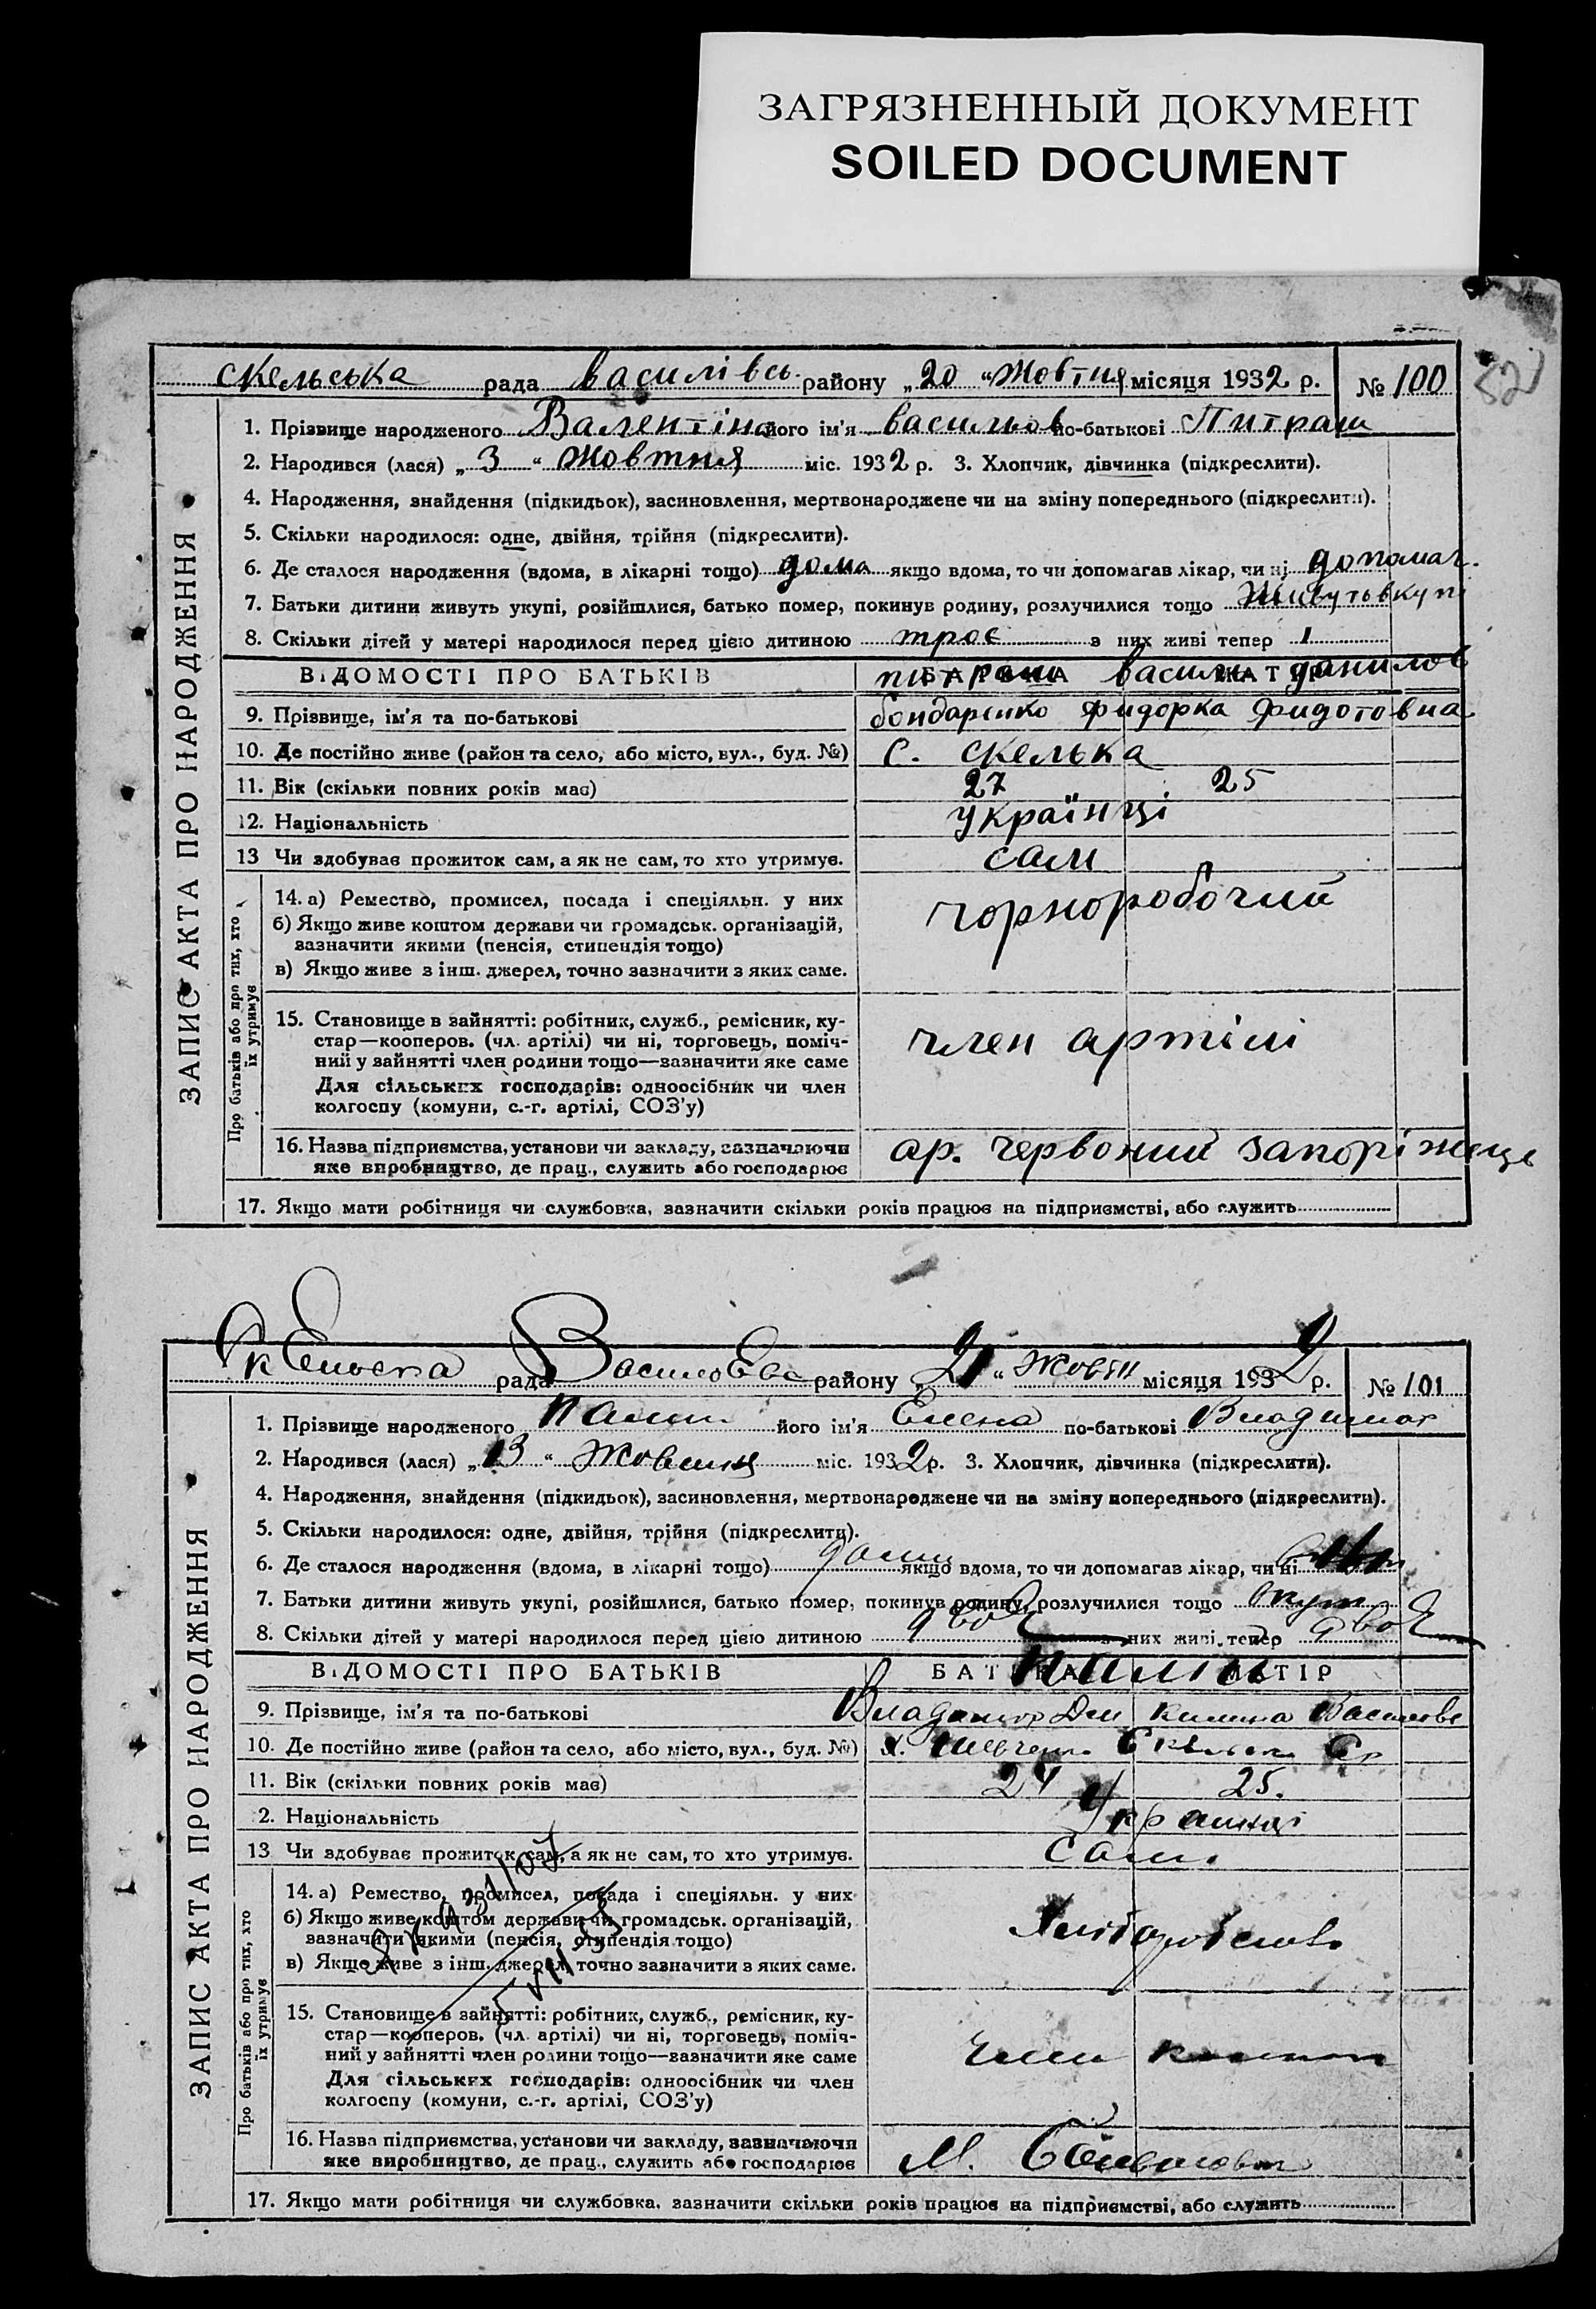 ЗАГРЯЗНЕННЫЙ ДОКУМЕНТ
SOILED DOCUMENT
скельська рада василівсь. району „20“ Жовтня місяця 1932 р. № 100
1. Прізвище народженого Валентіна його ім'я васильов по-батькові Питраш
2. Народився (лася) „3“ Жовтня міс. 1932 р. 3. Хлопчик, дівчинка (підкреслити).
4. Народження, знайдення (підкидьок), засиновлення, мертвонароджене чи на зміну попереднього (підкреслити).
5. Скільки народилося: одне, двійня, трійня (підкреслити).
6. Де сталося народження (вдома, в лікарні тощо) дома якщо вдома, то чи допомагав лікар, чи ні допомаг.
7. Батьки дитини живуть укупі, розійшлися, батько помер, покинув родину, розлучилися тощо Живуть вкупі
8. Скільки дітей у матері народилося перед цією дитиною троє з них живі тепер 1
ВІДОМОСТІ ПРО БАТЬКІВ БАТЬКА МАТІР
питраш василь данилов
9. Прізвище, ім'я та по-батькові бондаренко фидорка Фидотовна
10. Де постійно живе (район та село, або місто, вул., буд. №) с. скелька
11. Вік (скільки повних років має) 27 25
12. Національність українці
13 Чи здобуває прожиток сам, а як не сам, то хто утримує. сам
14. а) Ремество, промисел, посада і спеціяльн. у них чорноробочий
б) Якщо живе коштом держави чи громадськ. організацій,
зазначити якими (пенсія, стипендія тощо)
в) Якщо живе з інш. джерел, точно зазначити з яких саме.
15. Становище в зайнятті: робітник, служб., ремісник, ку-
стар—кооперов. (чл. артілі) чи ні, торговець, поміч-
ний у зайнятті член родини тощо—зазначити яке саме
член артілі
Для сільських господарів: одноосібник чи член
колгоспу (комуни, с.-г. артілі, СОЗ'у)
16. Назва підприємства, установи чи закладу, зазначаючи
яке виробництво, де прац., служить або господарює
ар. червоний запоріжець
17. Якщо мати робітниця чи службовка, зазначити скільки років працює на підприємстві, або служить
ЗАПИС АКТА ПРО НАРОДЖЕННЯ
Про батьків або про тих, хто
їх утримує
Скельська рада Василевс району „21“ Жовтн місяця 1932 р. № 101
1. Прізвище народженого його ім'я Елена по-батькові Владимир
2. Народився (лася) „13“ Жовтня міс. 1932 р. 3. Хлопчик, дівчинка (підкреслити).
4. Народження, знайдення (підкидьок), засиновлення, мертвонароджене чи на зміну попереднього (підкреслити).
5. Скільки народилося: одне, двійня, трійня (підкреслити).
6. Де сталося народження (вдома, в лікарні тощо) дома якщо вдома, то чи допомагав лікар, чи ні
7. Батьки дитини живуть укупі, розійшлися, батько помер, покинув родину, розлучилися тощо вкупі
8. Скільки дітей у матері народилося перед цією дитиною двоЕ з них живі тепер двоЕ
ВІДОМОСТІ ПРО БАТЬКІВ БАТЬКА МАТІР
9. Прізвище, ім'я та по-батькові Владимир Дем Килина Василевс
10. Де постійно живе (район та село, або місто, вул., буд. №) х. Шевченк Скельск Ср
11. Вік (скільки повних років має) 24 25.
12. Національність Українці
13 Чи здобуває прожиток сам, а як не сам, то хто утримує. Сам.
14. а) Ремество, промисел, посада і спеціяльн. у них
б) Якщо живе коштом держави чи громадськ. організацій,
зазначити якими (пенсія, стипендія тощо)
в) Якщо живе з інш. джерел, точно зазначити з яких саме.
15. Становище в зайнятті: робітник, служб., ремісник, ку-
стар—кооперов. (чл. артілі) чи ні, торговець, поміч-
ний у зайнятті член родини тощо—зазначити яке саме
Для сільських господарів: одноосібник чи член
колгоспу (комуни, с.-г. артілі, СОЗ'у)
16. Назва підприємства, установи чи закладу, зазначаючи
яке виробництво, де прац., служить або господарює
17. Якщо мати робітниця чи службовка, зазначити скільки років працює на підприємстві, або служить
ЗАПИС АКТА ПРО НАРОДЖЕННЯ
Про батьків або про тих, хто
їх утримує